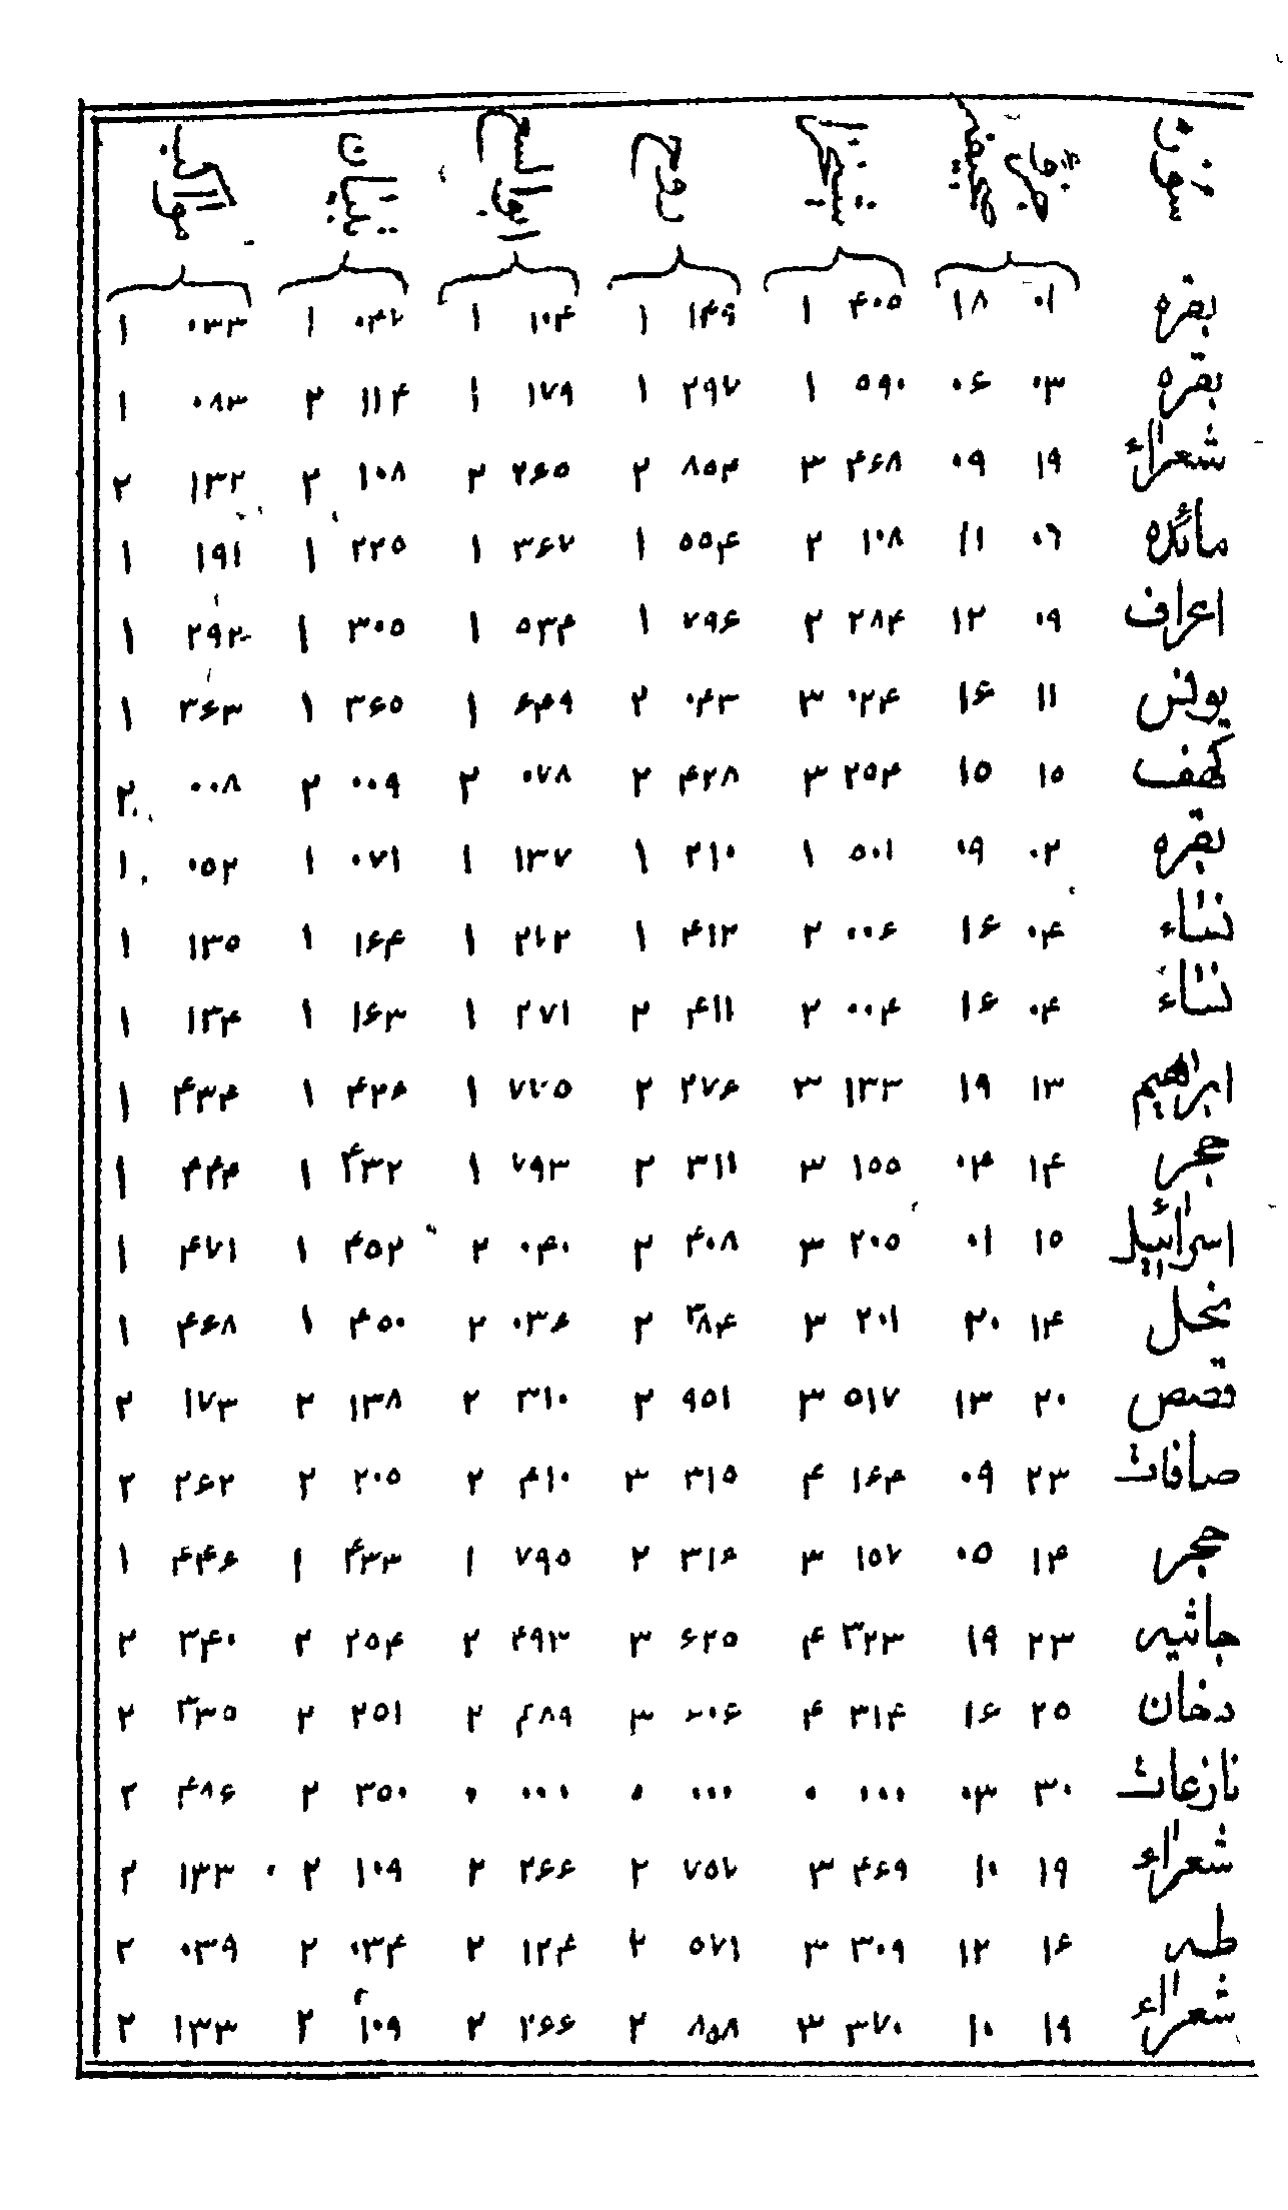 بقره ۰۱ ۱۸ ۴۰۵ ۱ ۱۴۹ ۱ ۱۰۴ ۱ ۰۴۷ ۱ ۰۳۳ ۱
بقره ۰۳ ۰۶ ۵۹۰ ۱ ۲۹۷ ۱ ۱۷۹ ۱ ۱۱۴ ۲ ۰۸۳ ۱
شعراء ۱۹ ۰۹ ۴۶۸ ۳ ۸۵۴ ۲ ۲۶۵ ۲ ۱۰۸ ۲ ۱۳۲ ۲
مائده ۰۶ ۱۱ ۱۰۸ ۲ ۵۵۴ ۱ ۳۶۷ ۱ ۲۲۵ ۱ ۱۹۱ ۱
اعراف ۰۹ ۱۲ ۲۸۴ ۲ ۷۹۶ ۱ ۵۳۴ ۱ ۳۰۵ ۱ ۲۹۲ ۱
یونس ۱۱ ۱۶ ۰۲۴ ۳ ۰۴۳ ۲ ۶۴۹ ۱ ۳۶۵ ۱ ۳۶۳ ۱
کهف ۱۵ ۱۵ ۲۵۴ ۳ ۴۲۸ ۲ ۰۷۸ ۲ ۰۰۹ ۲ ۰۰۸ ۲
بقره ۰۲ ۰۹ ۵۰۱ ۱ ۲۱۰ ۱ ۱۳۷ ۱ ۰۷۱ ۱ ۰۵۲ ۱
نساء ۰۴ ۱۶ ۰۰۶ ۲ ۴۱۲ ۱ ۲۷۲ ۱ ۱۶۴ ۱ ۱۳۵ ۱
نساء ۰۴ ۱۶ ۰۰۴ ۲ ۴۱۱ ۲ ۲۷۱ ۱ ۱۶۳ ۱ ۱۳۴ ۱
ابراهیم ۱۳ ۱۹ ۱۳۳ ۳ ۲۷۶ ۲ ۷۷۵ ۱ ۴۲۶ ۱ ۴۳۴ ۱
حجر ۱۴ ۰۴ ۱۵۵ ۳ ۳۱۱ ۲ ۷۹۳ ۱ ۴۳۲ ۱ ۴۴۴ ۱
اسرائیل ۱۵ ۰۱ ۲۰۵ ۳ ۴۰۸ ۲ ۰۴۰ ۲ ۴۵۲ ۱ ۴۷۱ ۱
نحل ۱۴ ۲۰ ۲۰۱ ۳ ۳۸۴ ۲ ۰۳۶ ۲ ۴۵۰ ۱ ۴۶۸ ۱
قصص ۲۰ ۱۳ ۵۱۷ ۳ ۹۵۱ ۲ ۳۱۰ ۲ ۱۳۸ ۲ ۱۷۳ ۲
صافات ۲۳ ۰۹ ۱۶۴ ۴ ۳۱۵ ۳ ۴۱۰ ۲ ۲۰۵ ۲ ۲۶۲ ۲
حجر ۱۴ ۰۵ ۱۵۷ ۳ ۳۱۶ ۲ ۷۹۵ ۱ ۴۳۳ ۱ ۴۴۶ ۱
جاثیه ۲۳ ۱۹ ۳۲۳ ۴ ۶۲۵ ۳ ۴۹۳ ۲ ۲۵۴ ۲ ۳۴۰ ۲
دخان ۲۵ ۱۶ ۳۱۴ ۴ ۲۰۶ ۳ ۴۸۹ ۲ ۲۵۱ ۲ ۳۳۵ ۲
نازعات ۳۰ ۰۳ ۰۰۰ ۰ ۰۰۰ ۰ ۰۰۰ ۰ ۳۵۰ ۲ ۴۸۶ ۲
شعراء ۱۹ ۱۰ ۴۶۹ ۳ ۷۵۷ ۲ ۲۶۶ ۲ ۱۰۹ ۲ ۱۳۳ ۲
طه ۱۶ ۱۲ ۳۰۹ ۳ ۵۷۱ ۲ ۱۲۴ ۲ ۰۳۴ ۲ ۰۳۹ ۲
شعراء ۱۹ ۱۰ ۳۷۰ ۳ ۸۵۸ ۲ ۲۶۶ ۲ ۱۰۹ ۲ ۱۳۳ ۲